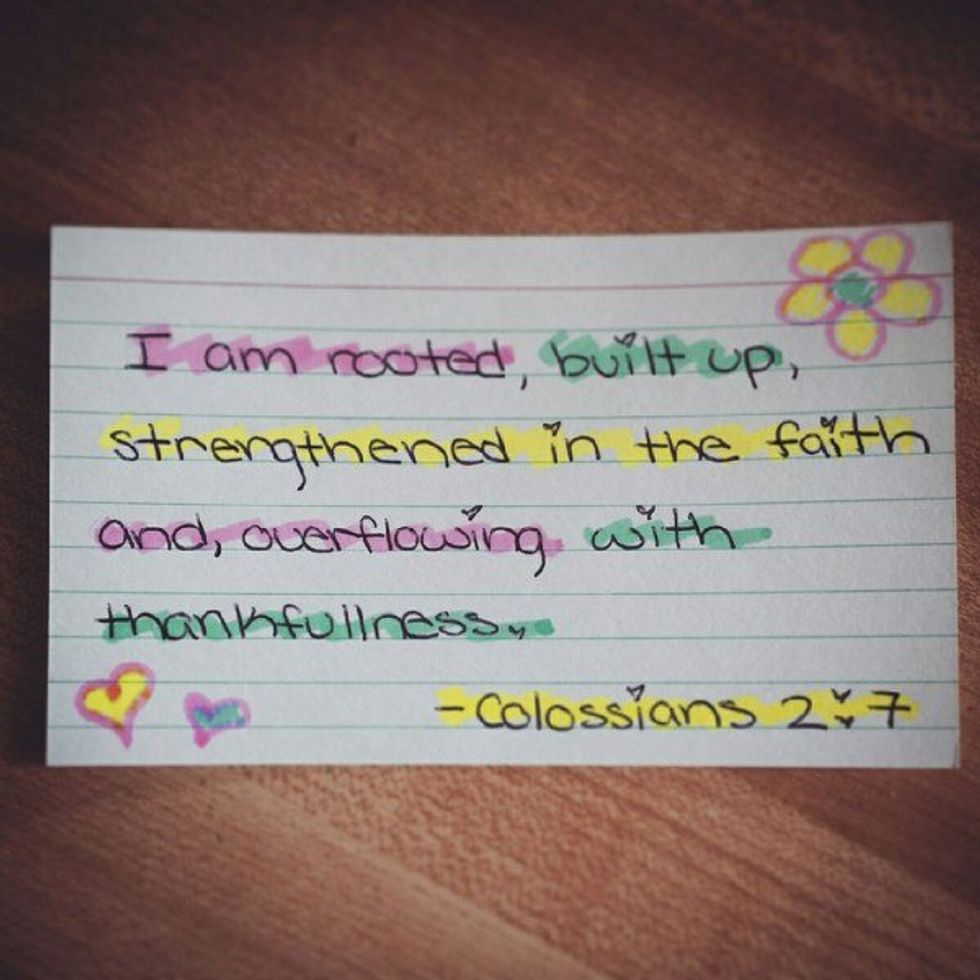 I am rooted, built up,
strengthened in the faith
and, overflowing with
thankfullness.
-Colossians 2:7